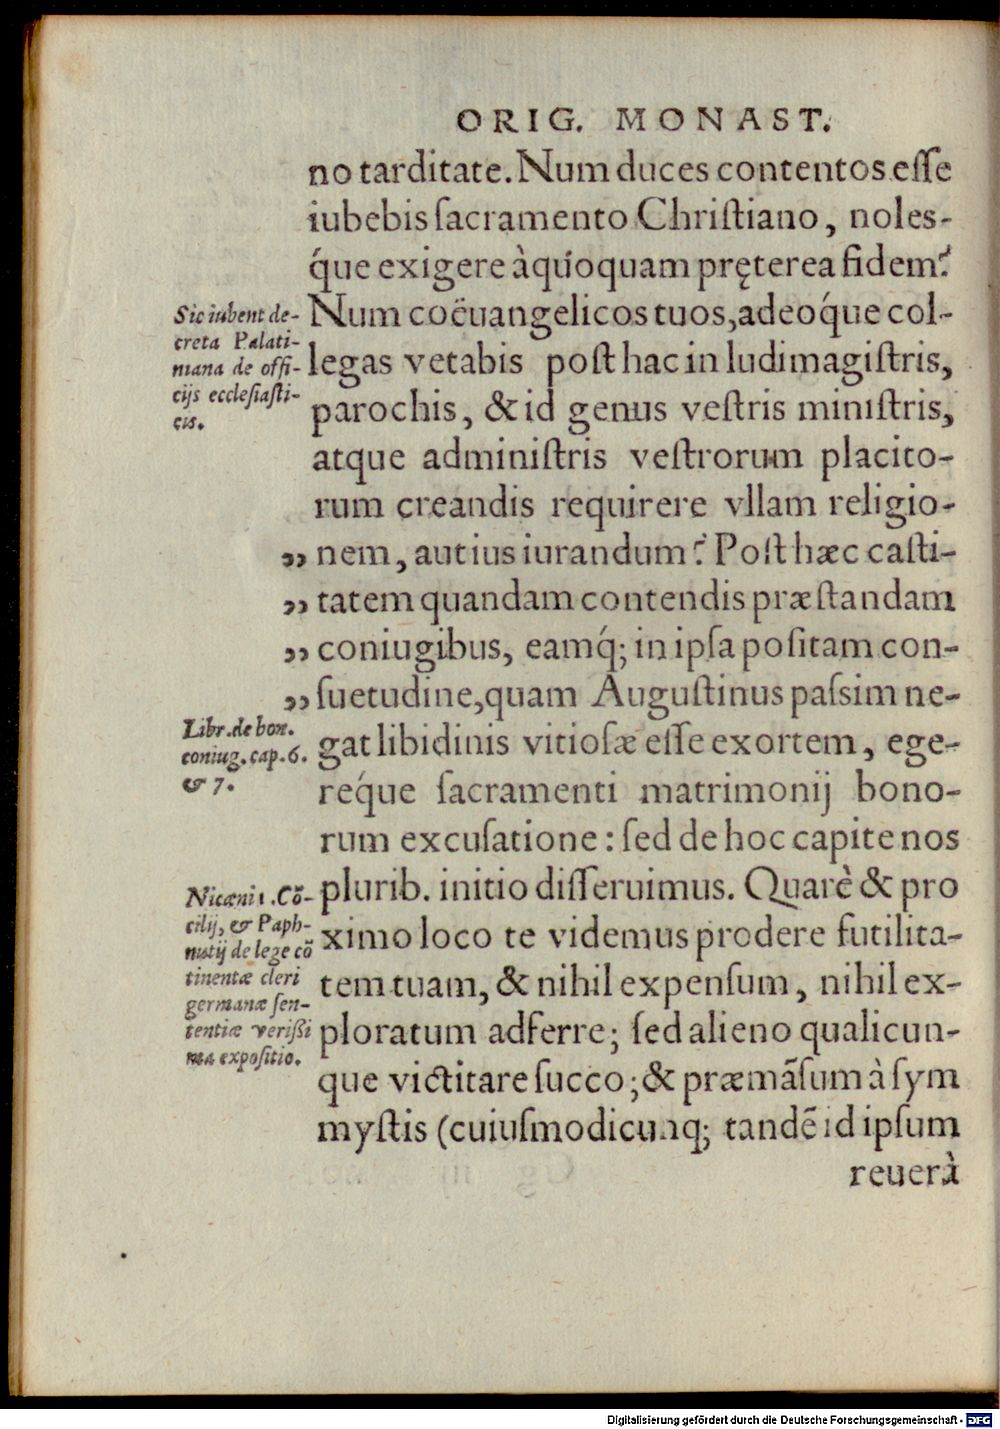 ORIG. MONAST.
no tarditate. Num duces contentos esse
iubebis ſacramento Chriſtiano, noles-
q́ue exigere à quoquam pręterea fidem?
Num coëuangelicos tuos, adeoq́ue col-
legas vetabis poſt hac in ludimagiſtris,
parochis, & id genus veſtris miniſtris,
atque adminiſtris veſtrorum placito-
rum creandis requirere vllam religio-
„ nem, aut ius iurandum? Poſt hæc caſti-
„ tatem quandam contendis præſtandam
„ coniugibus, eamq́; in ipſa poſitam con-
„ ſuetudine, quam Auguſtinus paſsim ne-
gat libidinis vitioſæ eſſe exortem, ege-
req́ue ſacramenti matrimonij bono-
rum excuſatione: ſed de hoc capite nos
plurib. initio diſſeruimus. Quarè & pro
ximo loco te videmus prodere futilita-
tem tuam, & nihil expenſum, nihil ex-
ploratum adferre; ſed alieno qualicun-
que victitare ſucco; & præmãſum à ſym
myſtis (cuiuſmodicunq; tandẽ id ipſum
reuerà
Sic iubent de-
creta Palati-
niana de offi-
cijs eccleſiaſti-
cis.
Libr. de bon.
coniug. cap. 6.
& 7.
Nicæni 1. Cõ-
cilij, & Paph-
nutij de lege cõ
tinentæ cleri
germanæ ſen-
tentiæ verißi
ma expoſitio.
Digitalisierung gefördert durch die Deutsche Forschungsgemeinschaft - DFG